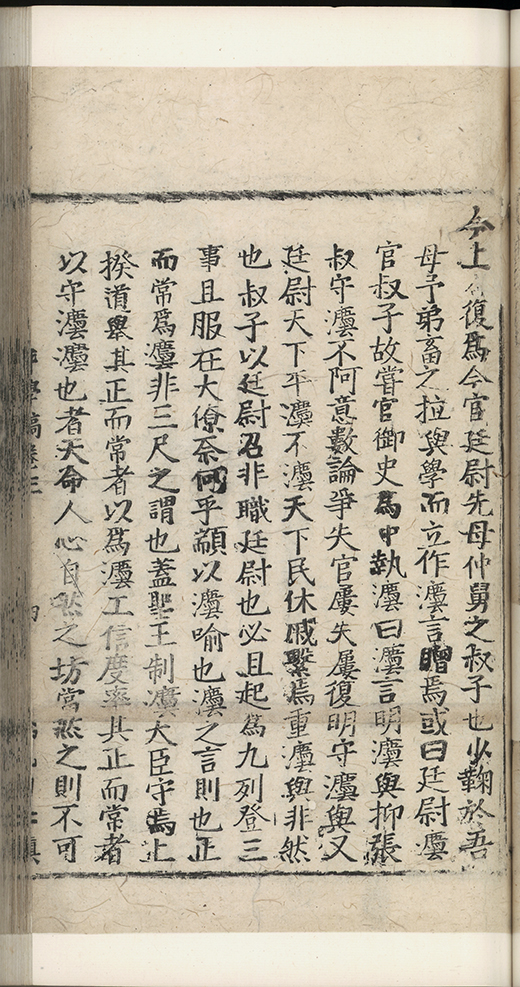 今上復爲今官廷尉先母仲舅之叔子也少鞠於吾
母予弟畜之故與學而立作灋言贈焉或曰廷尉灋
官叔子故嘗官御史爲中執灋曰灋言明灋與抑張
叔守灋不阿意數論爭失官屢失屢復明守灋與又
廷尉天下平灋不灋天下民休戚繫焉重灋與非然
也叔子以廷尉召非職廷尉也必且起爲九列登三
事且服在大僚奈何乎顓以灋喻也灋之言則也正
而常爲灋非三尺之謂也蓋聖王制灋大臣守焉上
揆道舉其正而常者以爲灋工信度率其正而常者
以守灋灋也者天命人心自然之坊當然之則不可
學稿卷三 四